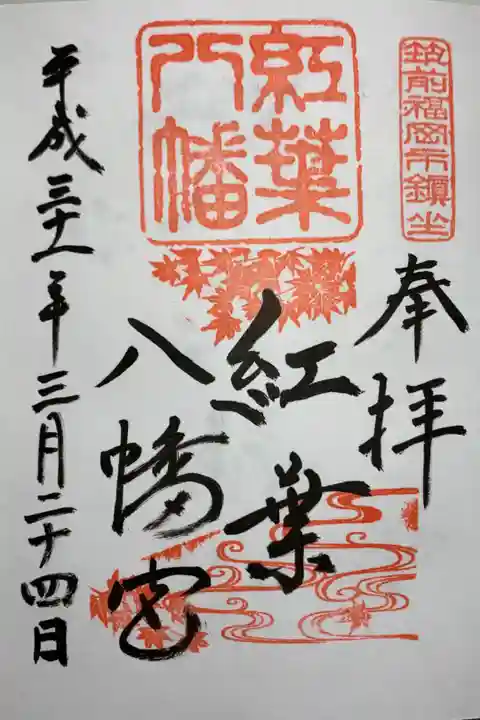 筑前福岡市鎮坐
奉拝
紅葉
八幡
紅葉
八幡宮
平成三十一年三月二十四日